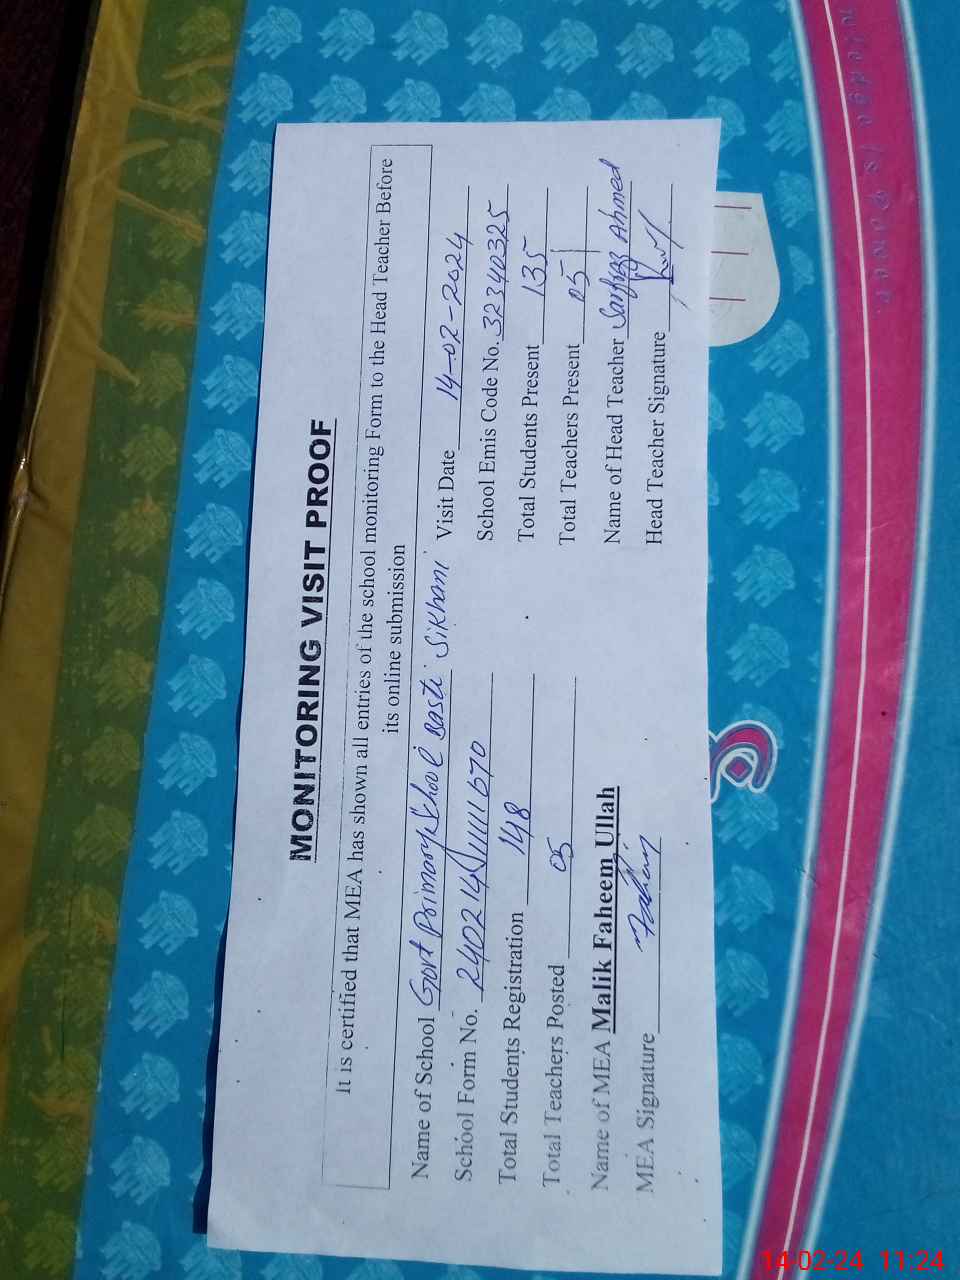 MONITORING VISIT PROOF
It is certified that MEA has shown all entries of the school monitoring Form to the Head Teacher Before
its online submission
Name of School Govt Primary School Basti Sikhani Visit Date 14-02-2024
School Form No. School Emis Code No. 32340325
Total Students Registration 148 Total Students Present 135
Total Teachers Posted 05 Total Teachers Present 05
Name of MEA Malik Faheem Ullah Name of Head Teacher Sarfraz Ahmed
MEA Signature Faheem Head Teacher Signature
14-02-24 11:24